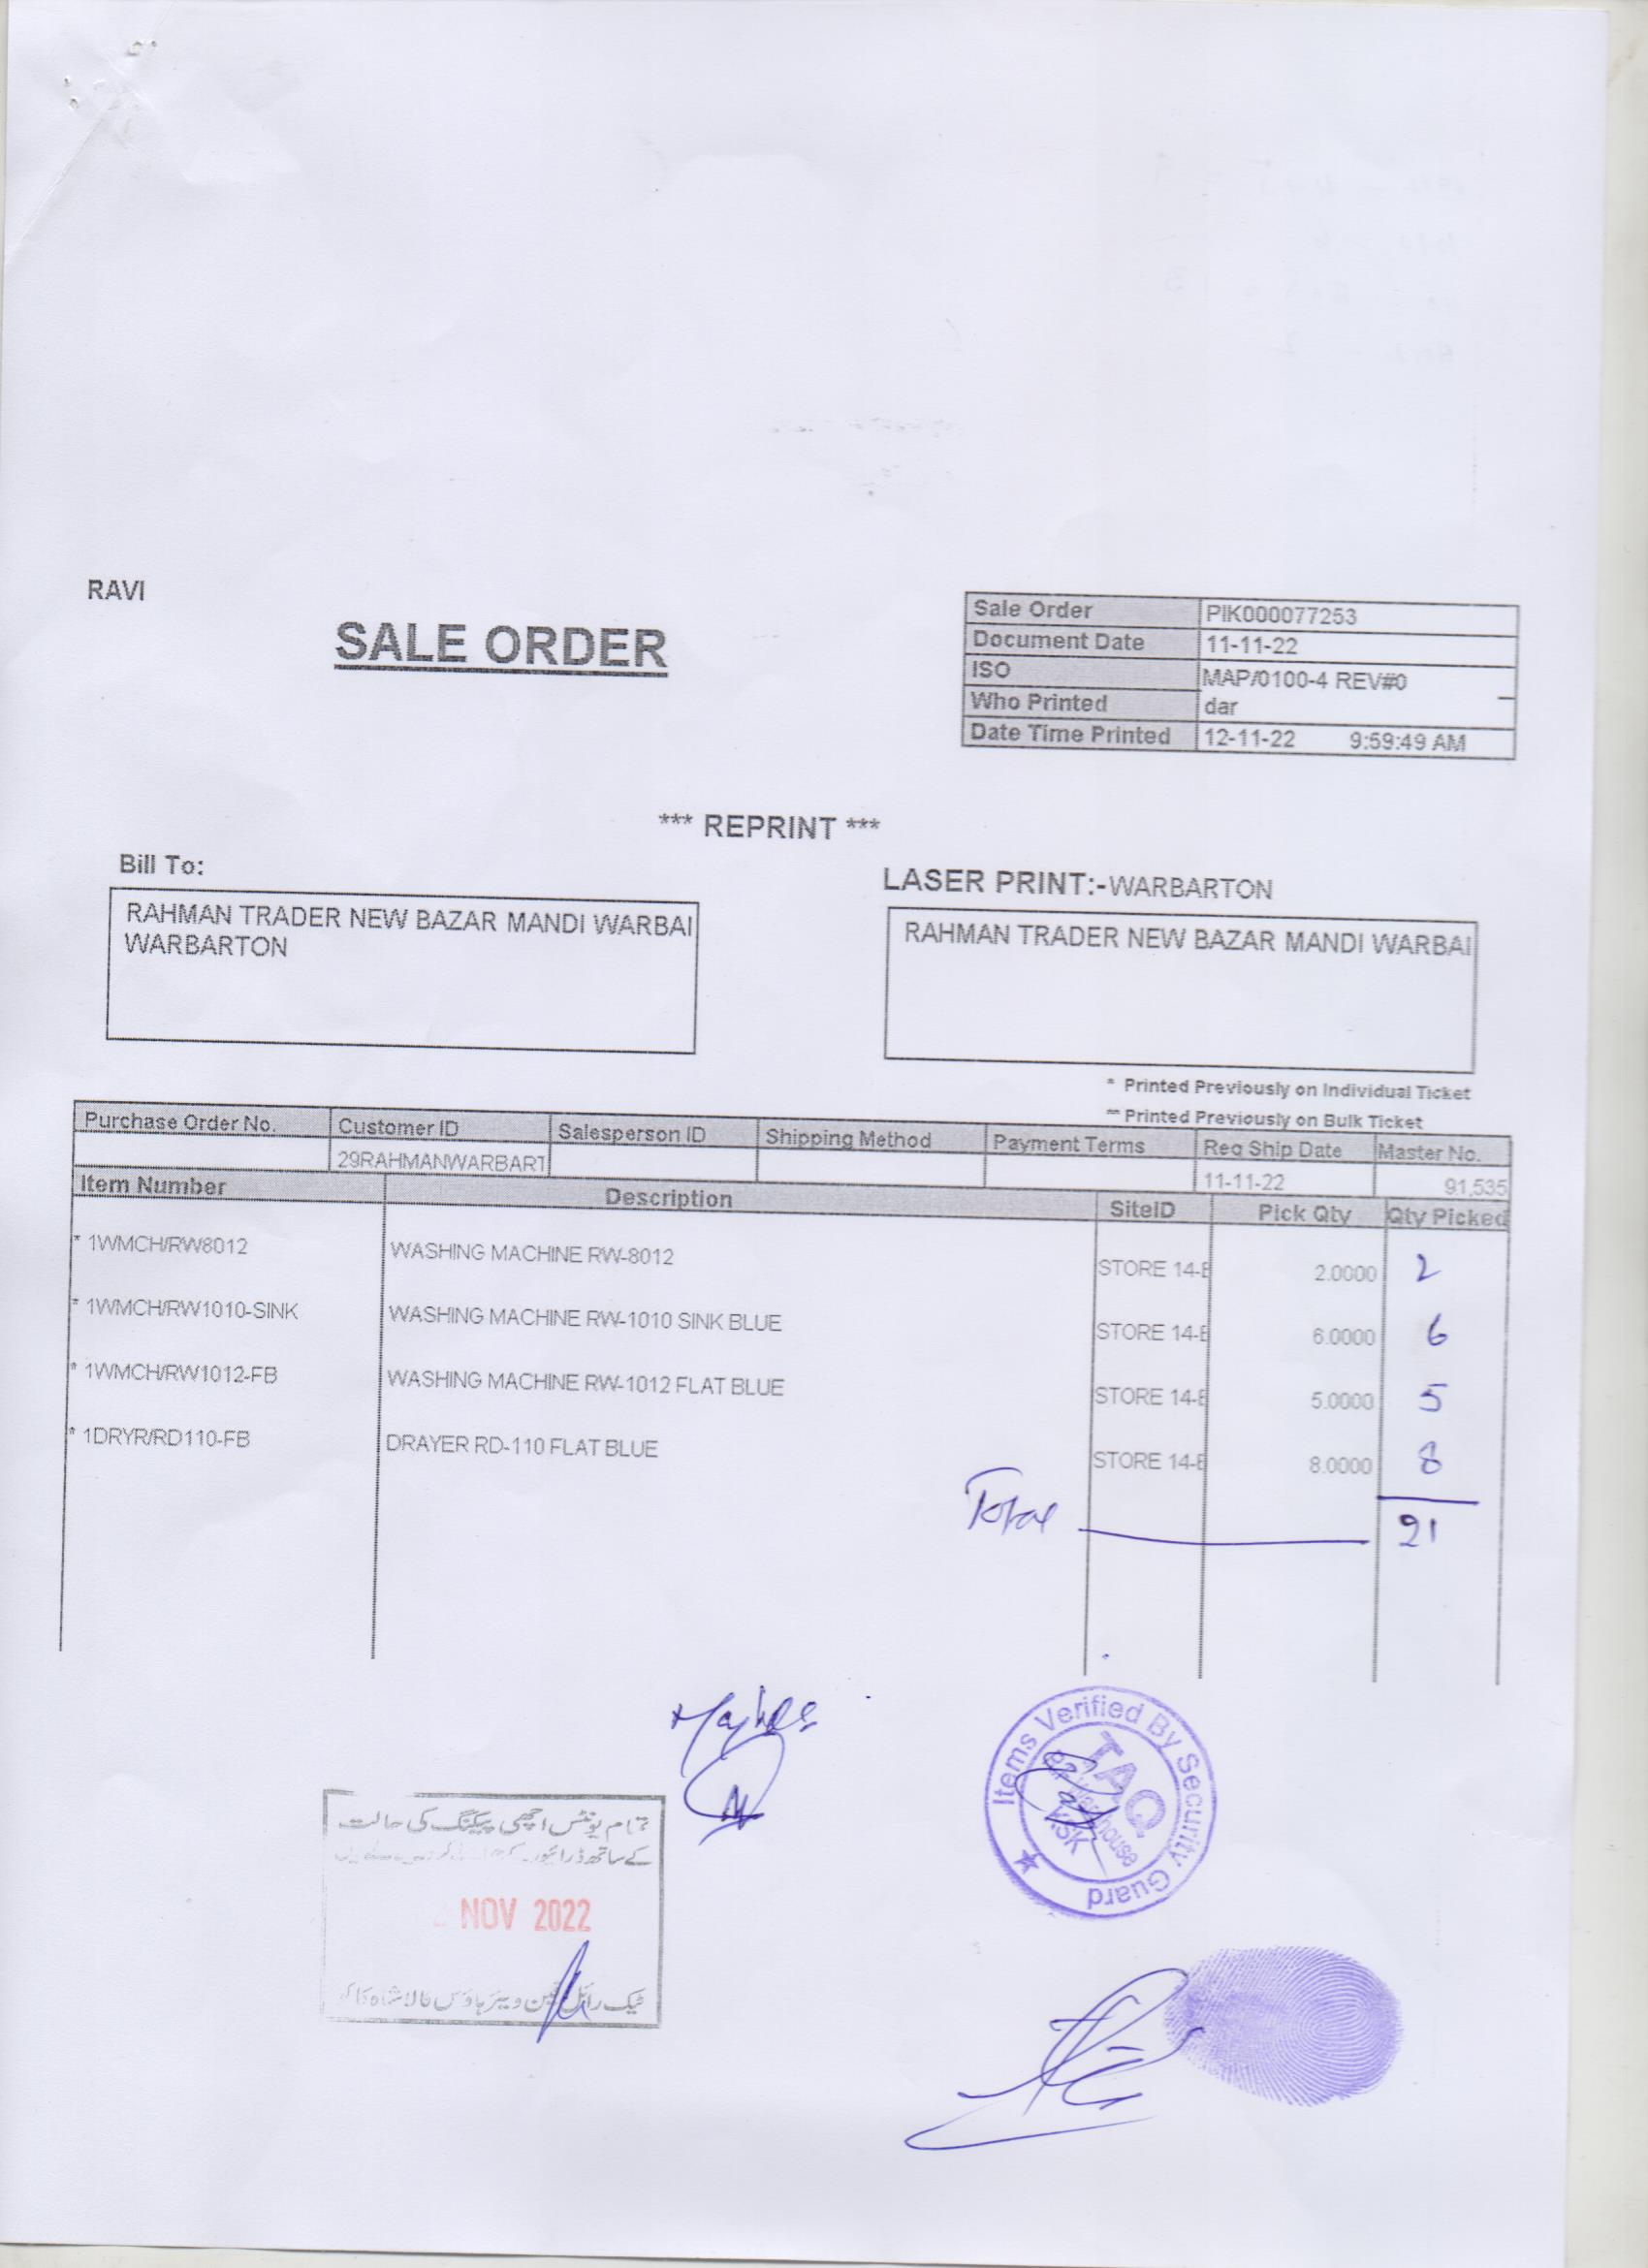 RAVI
SALE ORDER
Sale Order PIK000077253
Document Date 11-11-22
ISO MAP/0100-4 REV#0
Who Printed dar
Date Time Printed 12-11-22 9:59:49 AM
*** REPRINT ***
Bill To:
RAHMAN TRADER NEW BAZAR MANDI WARBAI
WARBARTON
LASER PRINT:-WARBARTON
RAHMAN TRADER NEW BAZAR MANDI WARBAI
* Printed Previously on Individual Ticket
** Printed Previously on Bulk Ticket
Purchase Order No. Customer ID Salesperson ID Shipping Method Payment Terms Req Ship Date Master No.
29RAHMANWARBART 11-11-22 91,535
Item Number Description SiteID Pick Qty Qty Picked
* 1WMCH/RW8012 WASHING MACHINE RW-8012 STORE 14-E 2.0000 2
* 1WMCH/RW1010-SINK WASHING MACHINE RW-1010 SINK BLUE STORE 14-E 6.0000 6
* 1WMCH/RW1012-FB WASHING MACHINE RW-1012 FLAT BLUE STORE 14-E 5.0000 5
* 1DRYR/RD110-FB DRAYER RD-110 FLAT BLUE STORE 14-E 8.0000 8
Total 21
Items Verified By Security Guard
TAQ
Warehouse
KSK
تمام یونٹس اچھی پیکنگ کی حالت
کے ساتھ ڈرائیور
NOV 2022